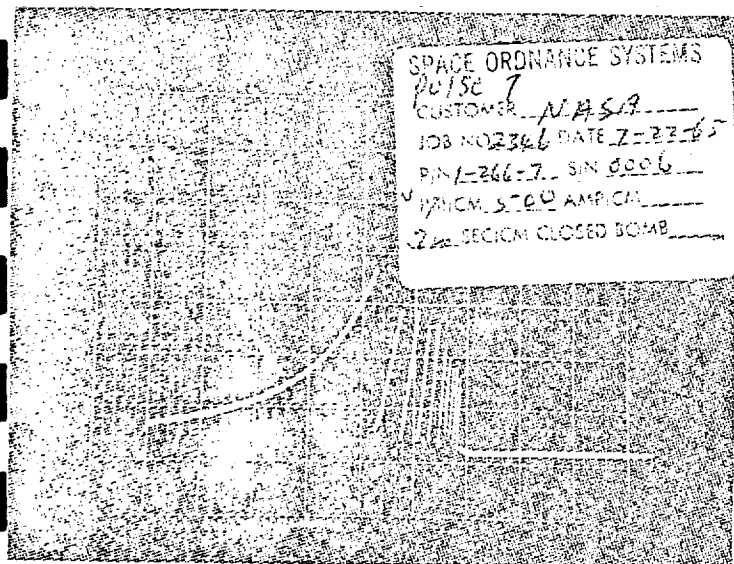 SPACE ORDNANCE SYSTEMS
Pulse 7
CUSTOMER NASA
JOB NO 2346 DATE 7-27-65
P/N 1-266-7 S/N 0006
V /CM 500 AMP/CM
SEC/CM CLOSED BOMB